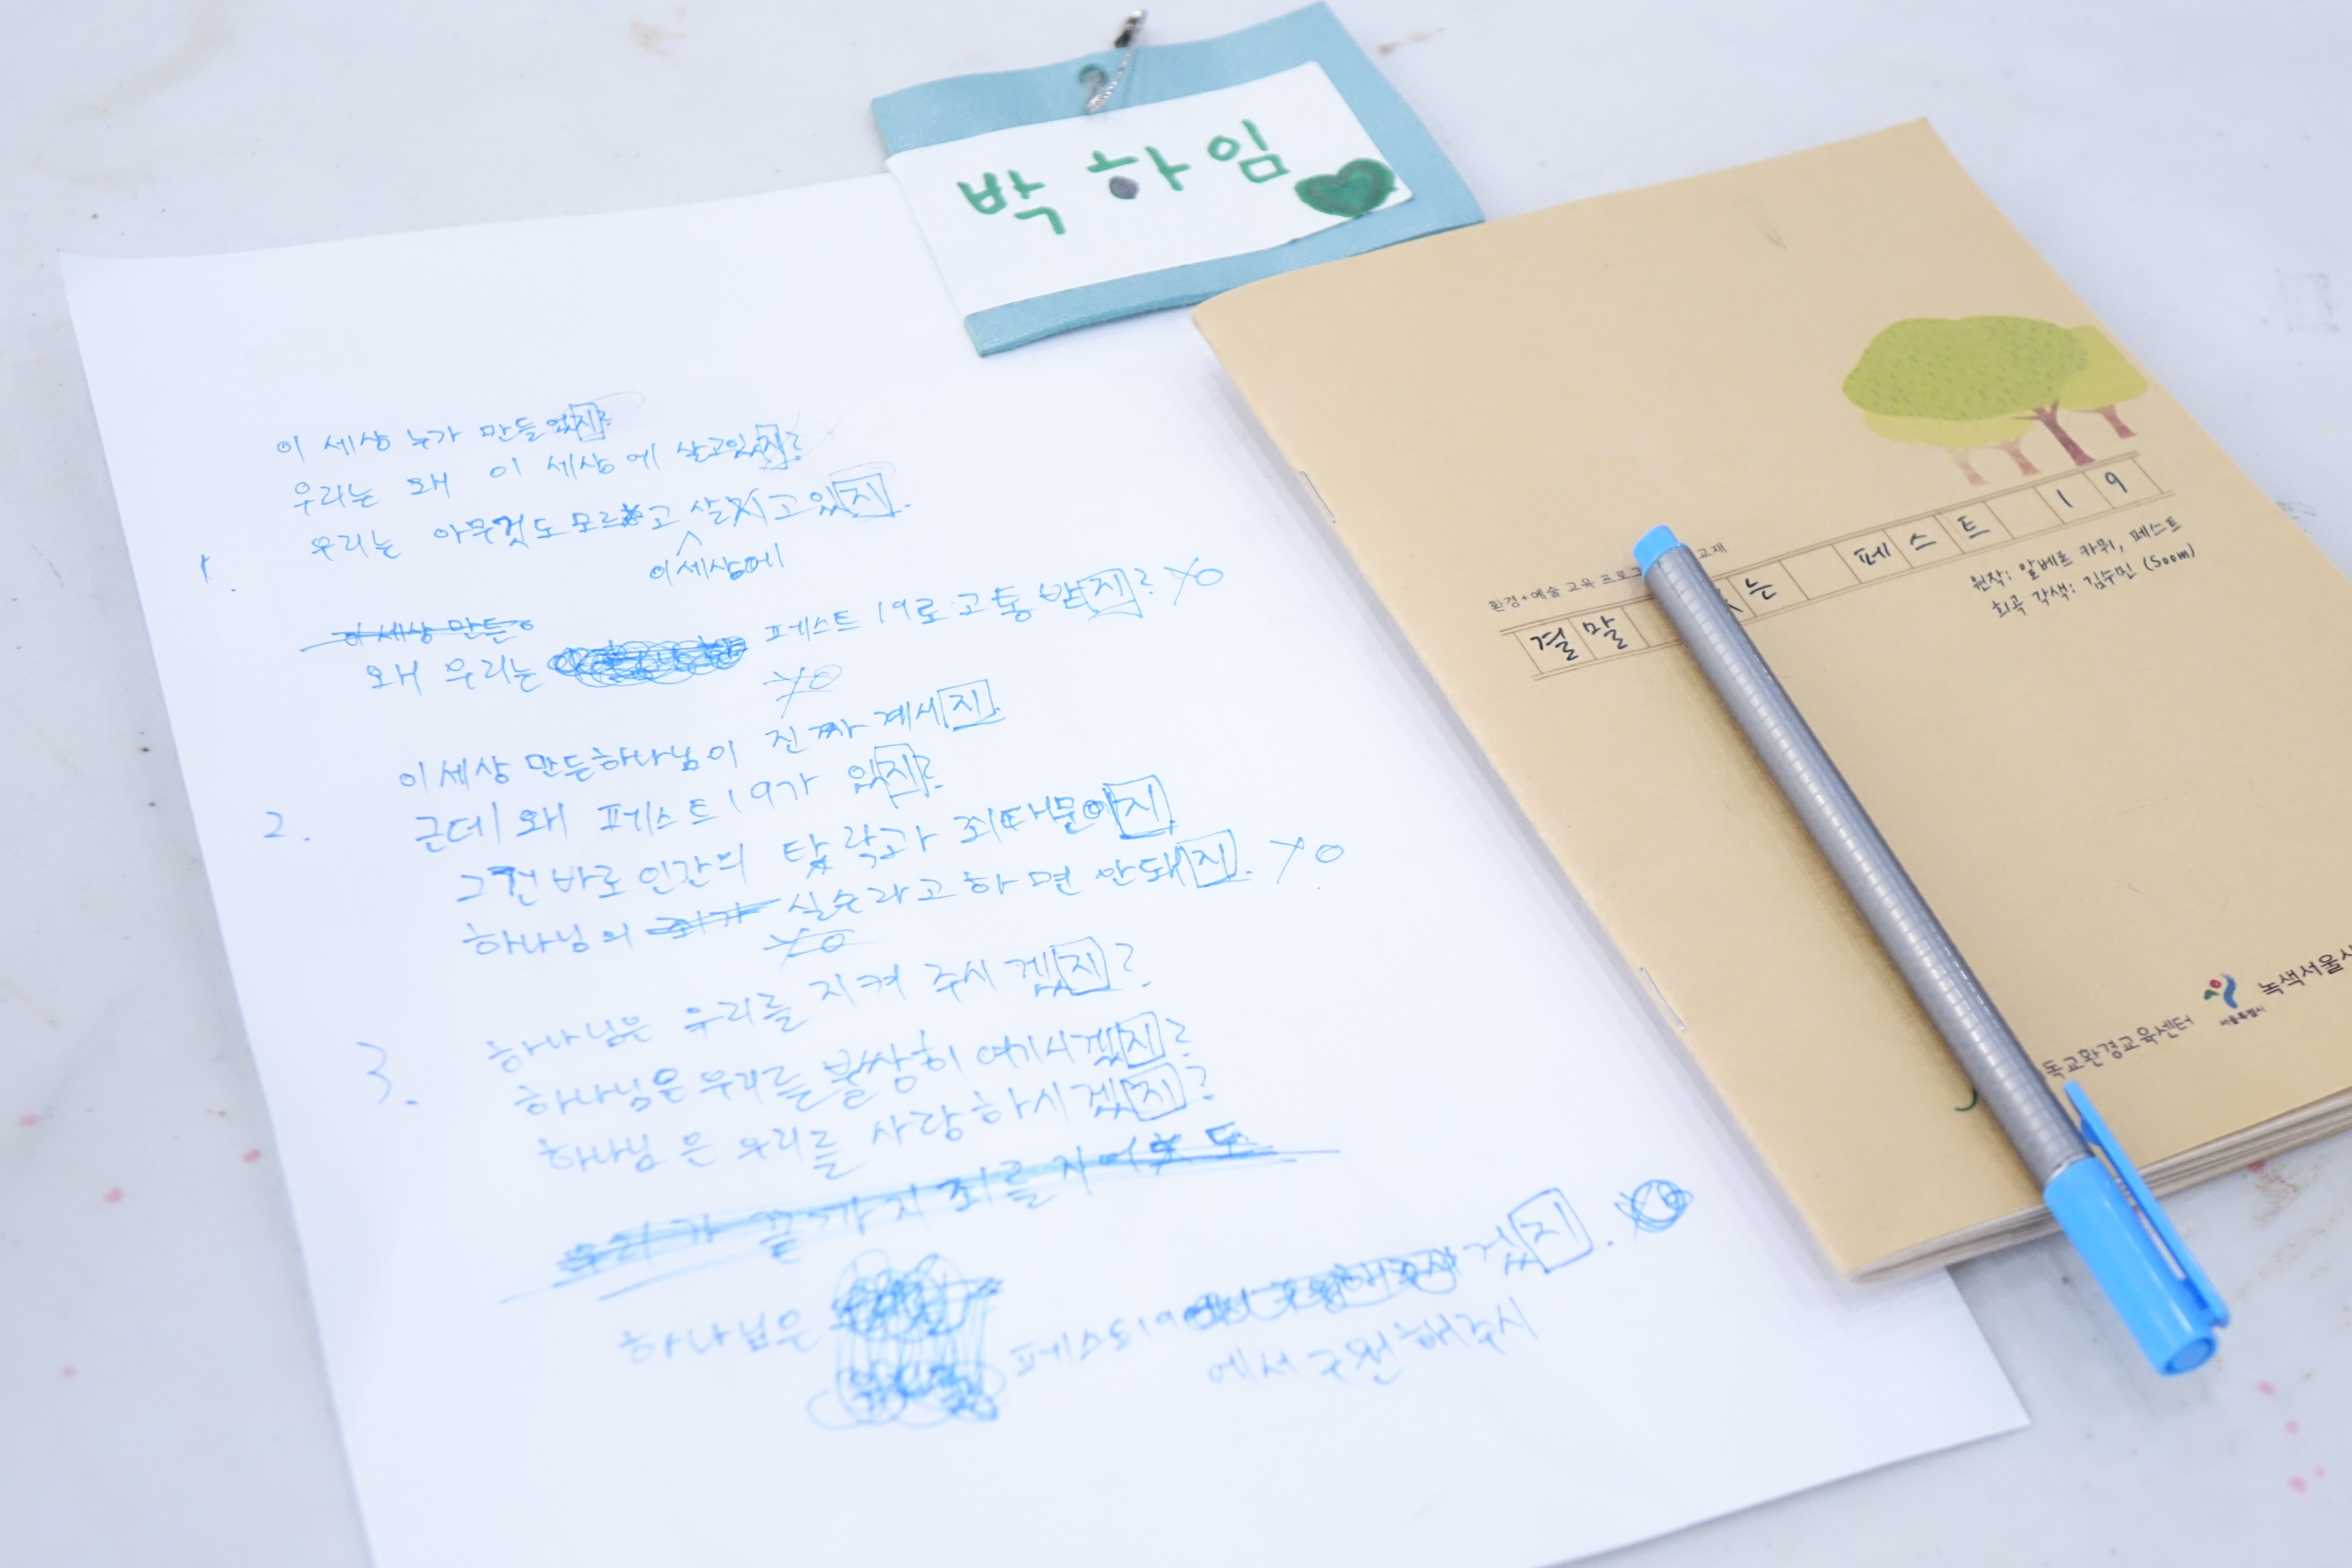 박하임
이 세상 누가 만들었지?
우리는 왜 이 세상에 살고있지?
1. 우리는 아무것도 모르고 살고있지.
이세상에
이 세상 만든
왜 우리는 페스트 19로 고통 받지?
2. 이세상 만든하나님이 진짜 계세지.
근데 왜 페스트19가 있지?
그건 바로 인간의 탐락과 죄때문이지
하나님의 실수라고하면 안돼지.
3. 하나님은 우리를 지켜 주시겠지?
하나님은 우리를 불쌍히 여기시겠지?
하나님은 우리를 사랑하시겠지?
우리가 끝까지 죄를 지어도
하나님은 페스트19 겠지.
에서 구원해주시
환경+예술 교육 프로 교재
결말 는 페스트 19
원작: 알베르 카뮈, 페스트
희곡 각색: 김수민 (Soom)
독교환경교육센터
서울특별시
녹색서울시